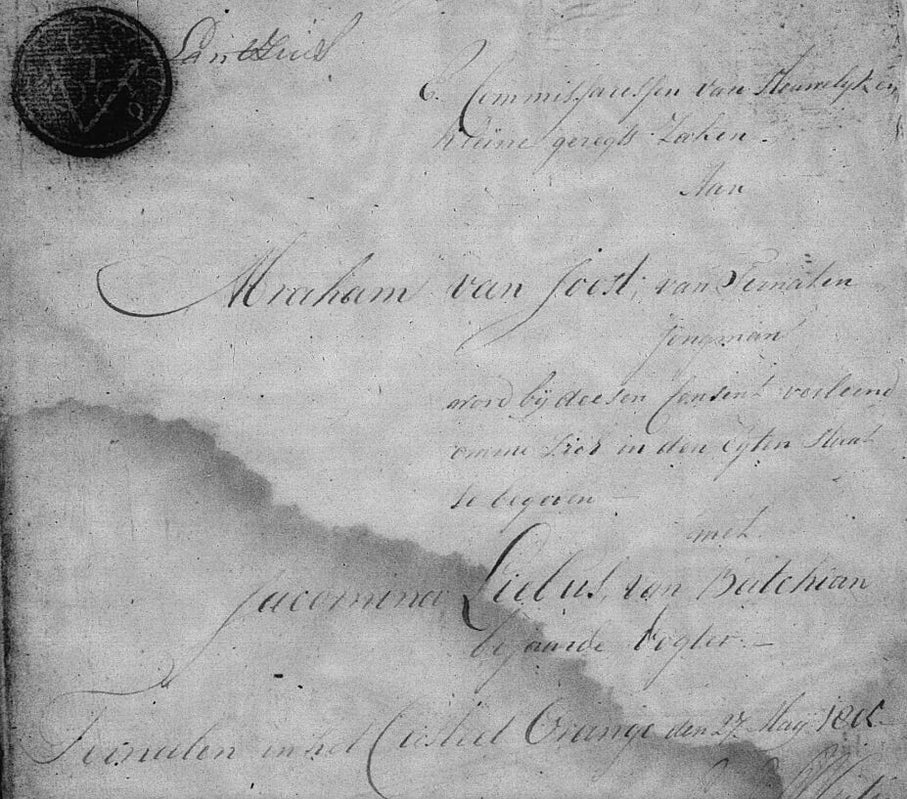 E. Commissarissen van Houwelyk en
kleine geregts Zaken.
Aan
Abraham van Joost, van Ternaten
Jongman
word bij deesen Consent verleend
omme sich in den Egten Staat
te begeven —
met.
Jacomina Lidius, van Batchian
bejaarde Dogter. —
Ternaten in het Casteel Orange den 27. May 180